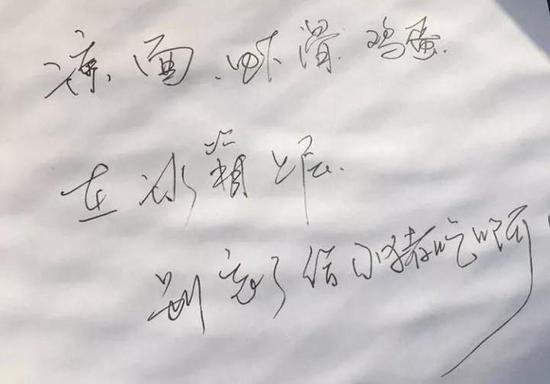 凉面、虾滑、鸡蛋.
在冰箱上层.
别忘了给小猪吃啊